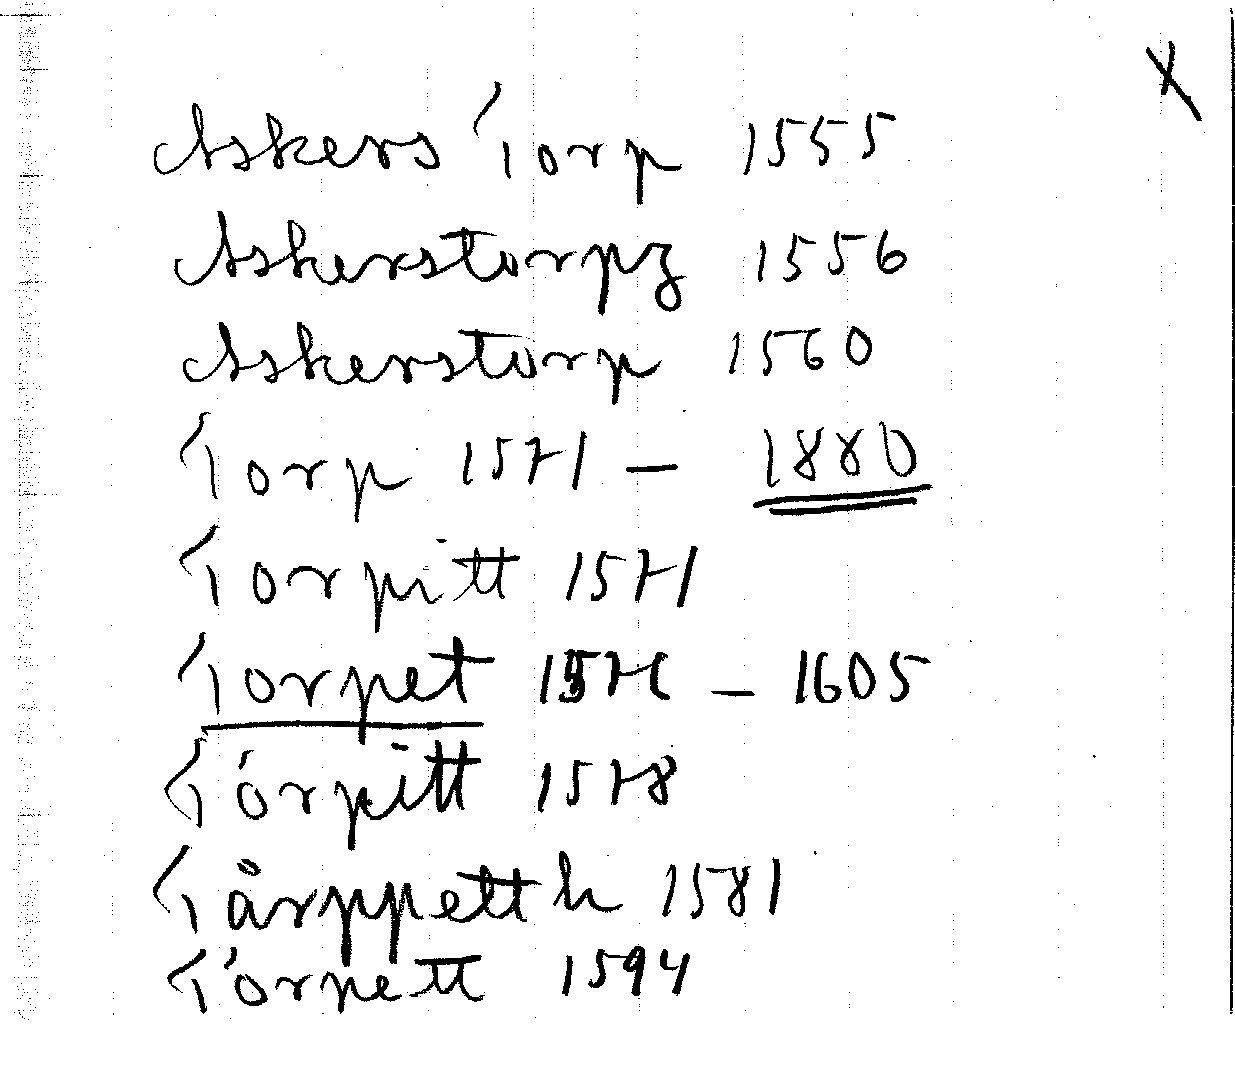 Askers Torp 1555
Askerstorpz 1556
Askerstorp 1560
Torp 1571 – 1880
Torpitt 1571
Torpet 1576 – 1605
Tórpitt 1578
Tårppetth 1581
Tórpett 1594